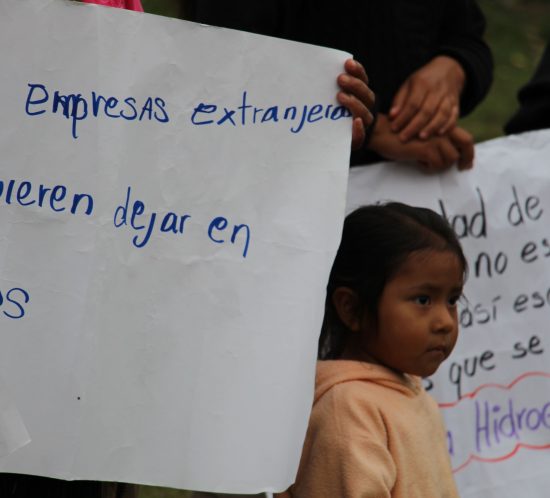 Empresas extranjeras
ieren dejar en
os
dad de
no es
así es
que se
Hidroe